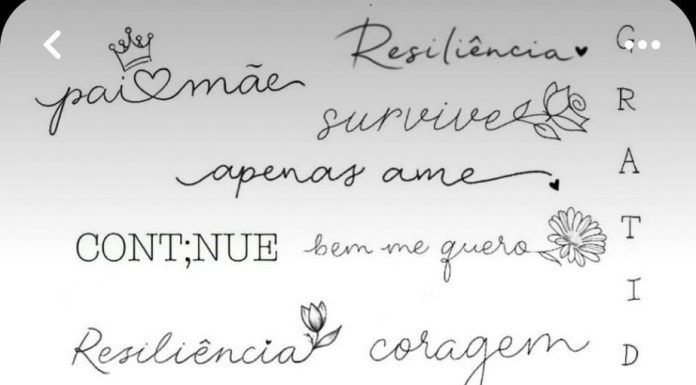 pai mãe
Resiliência
survive
apenas ame
CONT;NUE
bem me quero
Resiliência
coragem
G
R
A
T
I
D